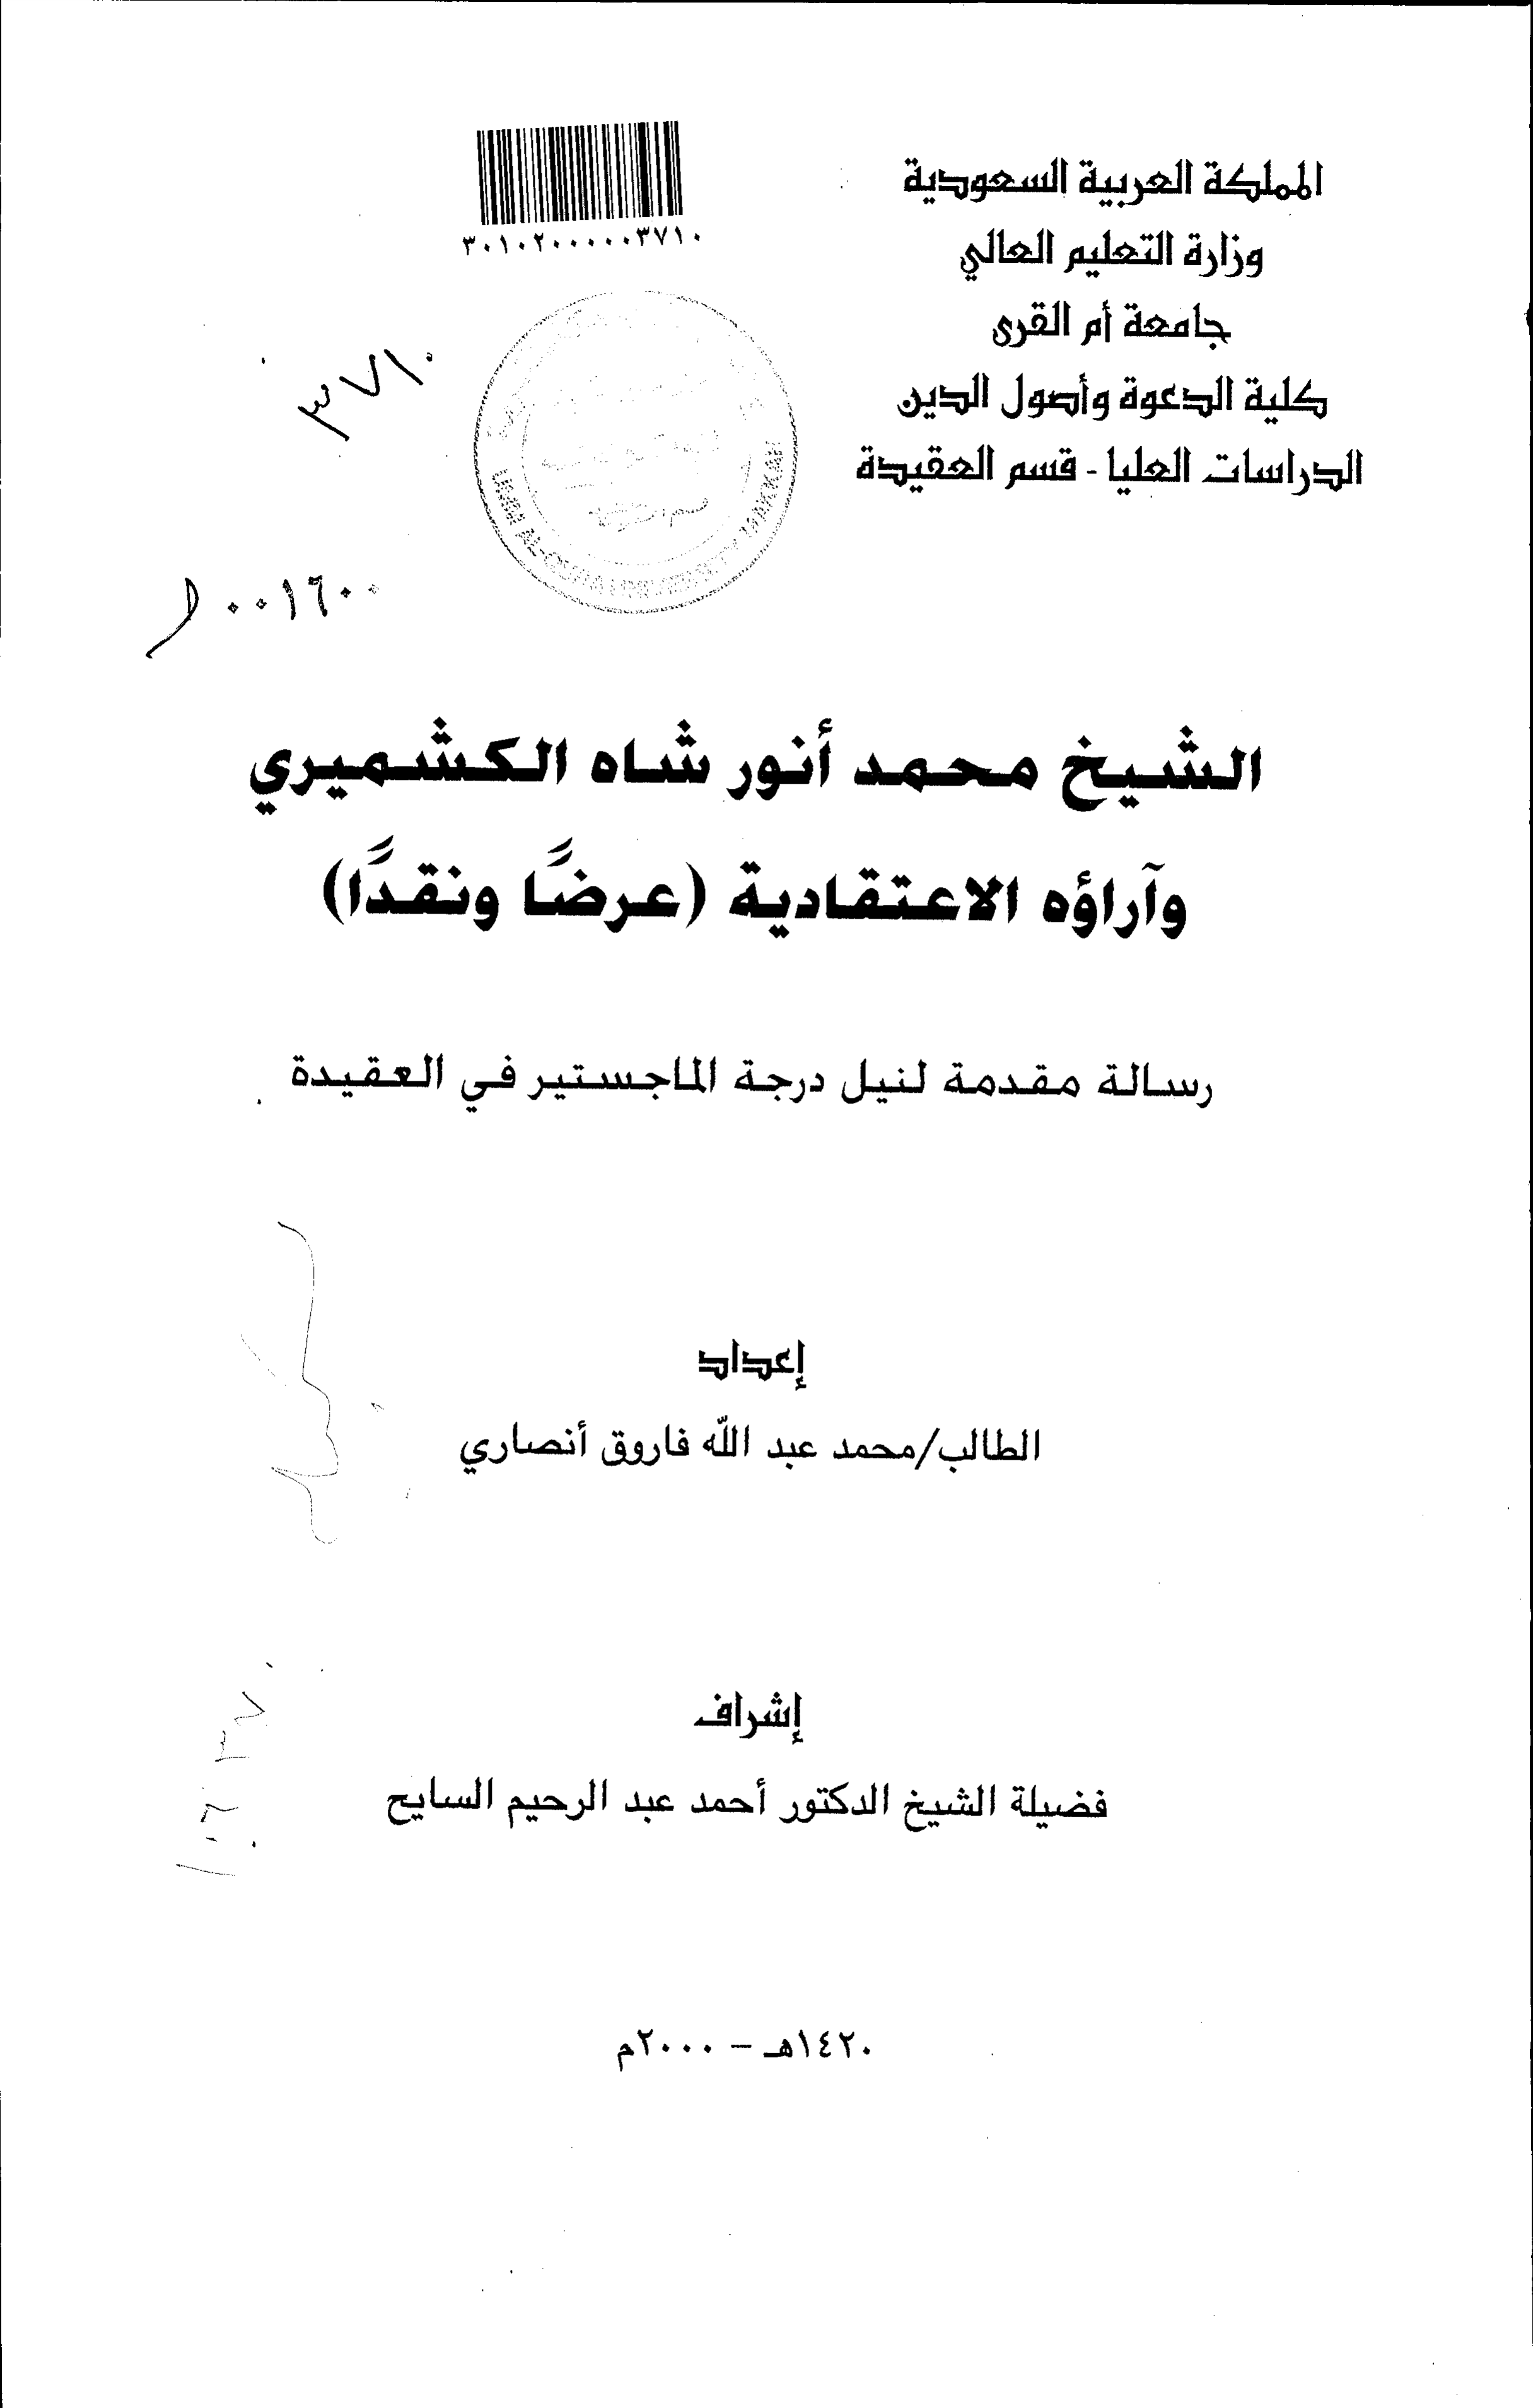 المملكة العربية السعودية
وزارة التعليم العالي
جامعة أم القرى
كلية الدعوة وأصول الدين
الدراسات العليا - قسم العقيدة
٣٠١٠٢٠٠٠٠٠٣٧١٠
٣٧١٠
UMM AL-QURA UNIVERSITY MAKKAH
٠٠١٦٠٠
الشيخ محمد أنور شاه الكشميري
وآراؤه الاعتقادية (عرضًا ونقدًا)
رسالة مقدمة لنيل درجة الماجستير في العقيدة
إعداد
الطالب/محمد عبد الله فاروق أنصاري
إشراف
فضيلة الشيخ الدكتور أحمد عبد الرحيم السايح
١٤٢٠هـ – ٢٠٠٠م